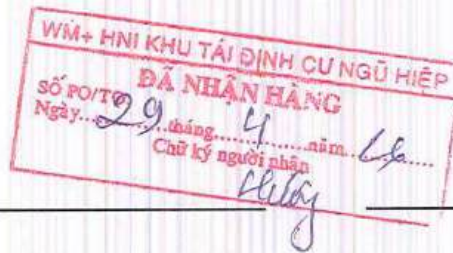 WM+ HNI KHU TÁI ĐỊNH CƯ NGŨ HIỆP
ĐÃ NHẬN HÀNG
SỐ PO/TO
Ngày 29 tháng 4 năm
Chữ ký người nhận